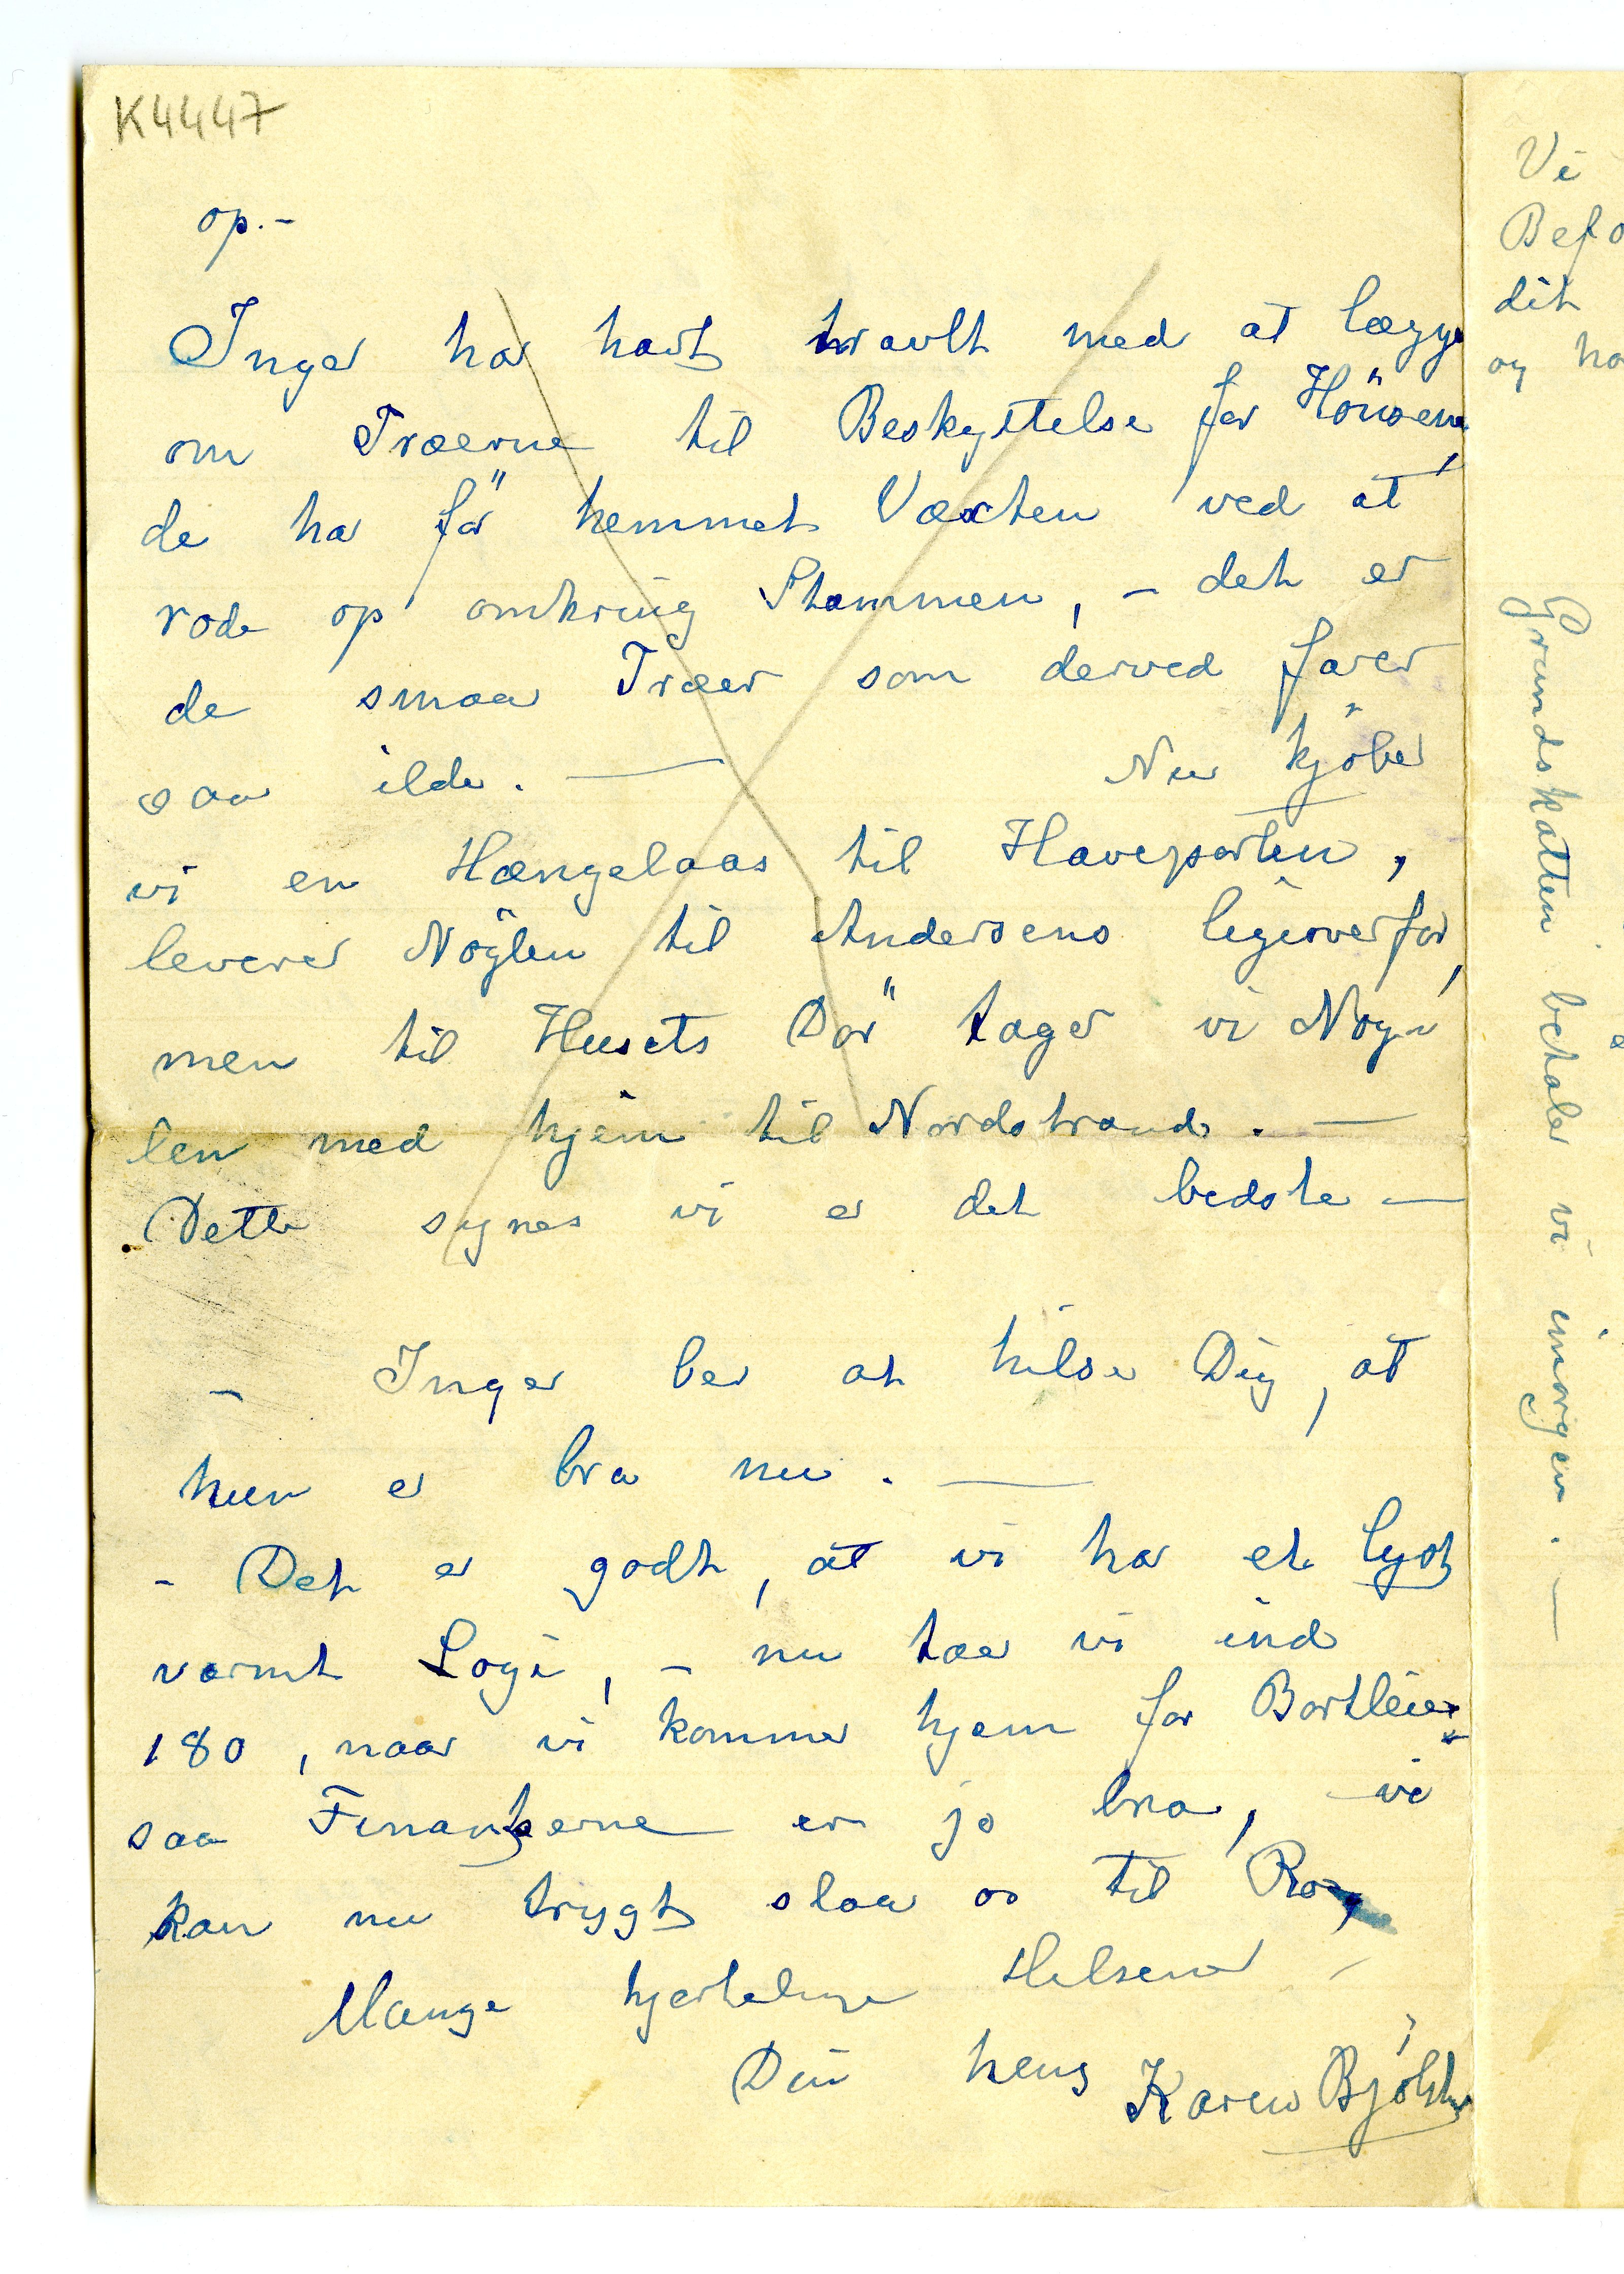 K4447
op.-
Inger har havt travlt med at lægge
om Træerne til Beskyttelse for Hönsene,
de har för hemmet Væxten ved at
rode op omkring Stammen, - det er
de smaa Træer som derved farer
saa ilde. — Nu kjöber
vi en Hængelaas til Haveporten,
leverer Nöglen til Andersens ligeoverfor,
men til Husets Dör tager vi Nög-
len med hjem til Nordstrand. —
Dette synes vi er det bedste —
- Inger ber at hilse Dig, at
hun er bra nu. —
- Det er godt, at vi har et lyst
varmt Logi, - nu taer vi ind
180, naar vi kommer hjem for Bortleie
saa Finanserne er jo bra, vi
kan nu trygt slaa os til Ro,
Mange hjertelige Hilsener -
Din heng Karen Bjölstad
Vi
Befo
dit
og ha
Grundskatten betaler vi imorgen. —